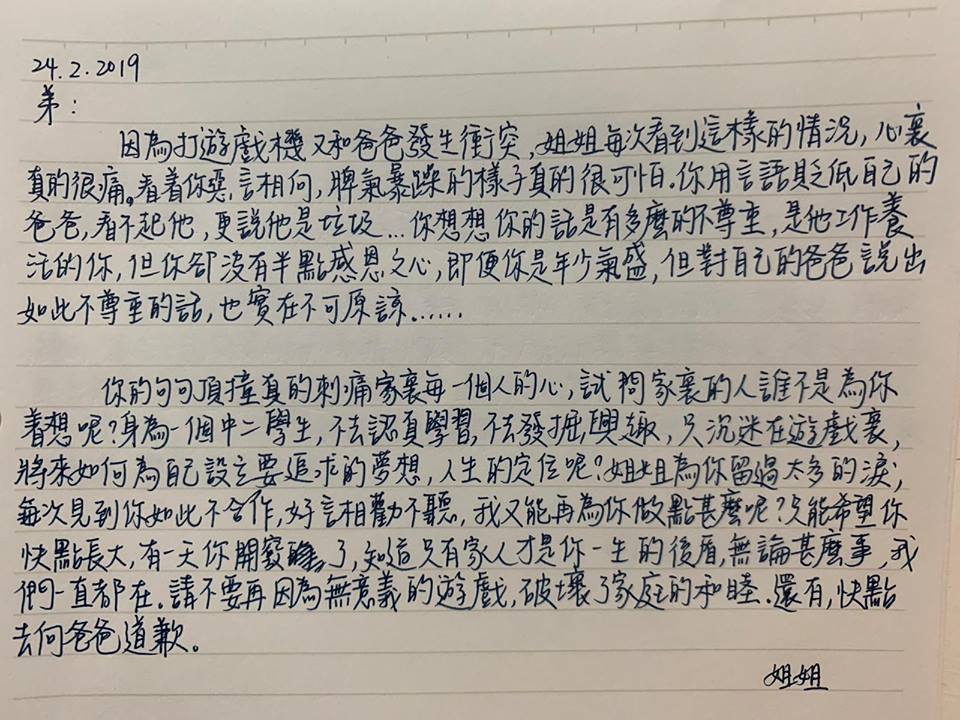 24.2.2019
弟：
因為打遊戲機又和爸爸發生衝突，姐姐每次看到這樣的情況，心裏
真的很痛。看着你惡言相向，脾氣暴躁的樣子真的很可怕。你用言語貶低自己的
爸爸，看不起他，更說他是垃圾…你想想你的話是有多麼的不尊重，是他工作養
活的你，但你卻沒有半點感恩之心，即便你是年少氣盛，但對自己的爸爸說出
如此不尊重的話，也實在不可原諒……
你的句句頂撞真的刺痛家裏每一個人的心，試問家裏的人誰不是為你
着想呢？身為一個中二學生，不去認真學習，不去發掘興趣，只沉迷在遊戲裏，
將來如何為自己設立要追求的夢想，人生的定位呢？姐姐為你留過太多的淚；
每次見到你如此不合作，好言相勸不聽，我又能再為你做點甚麼呢？只能希望你
快點長大，有一天你開竅了，知道只有家人才是你一生的後盾，無論甚麼事，我
們一直都在。請不要再因為無意義的遊戲，破壞了家庭的和睦。還有，快點
去向爸爸道歉。
姐姐